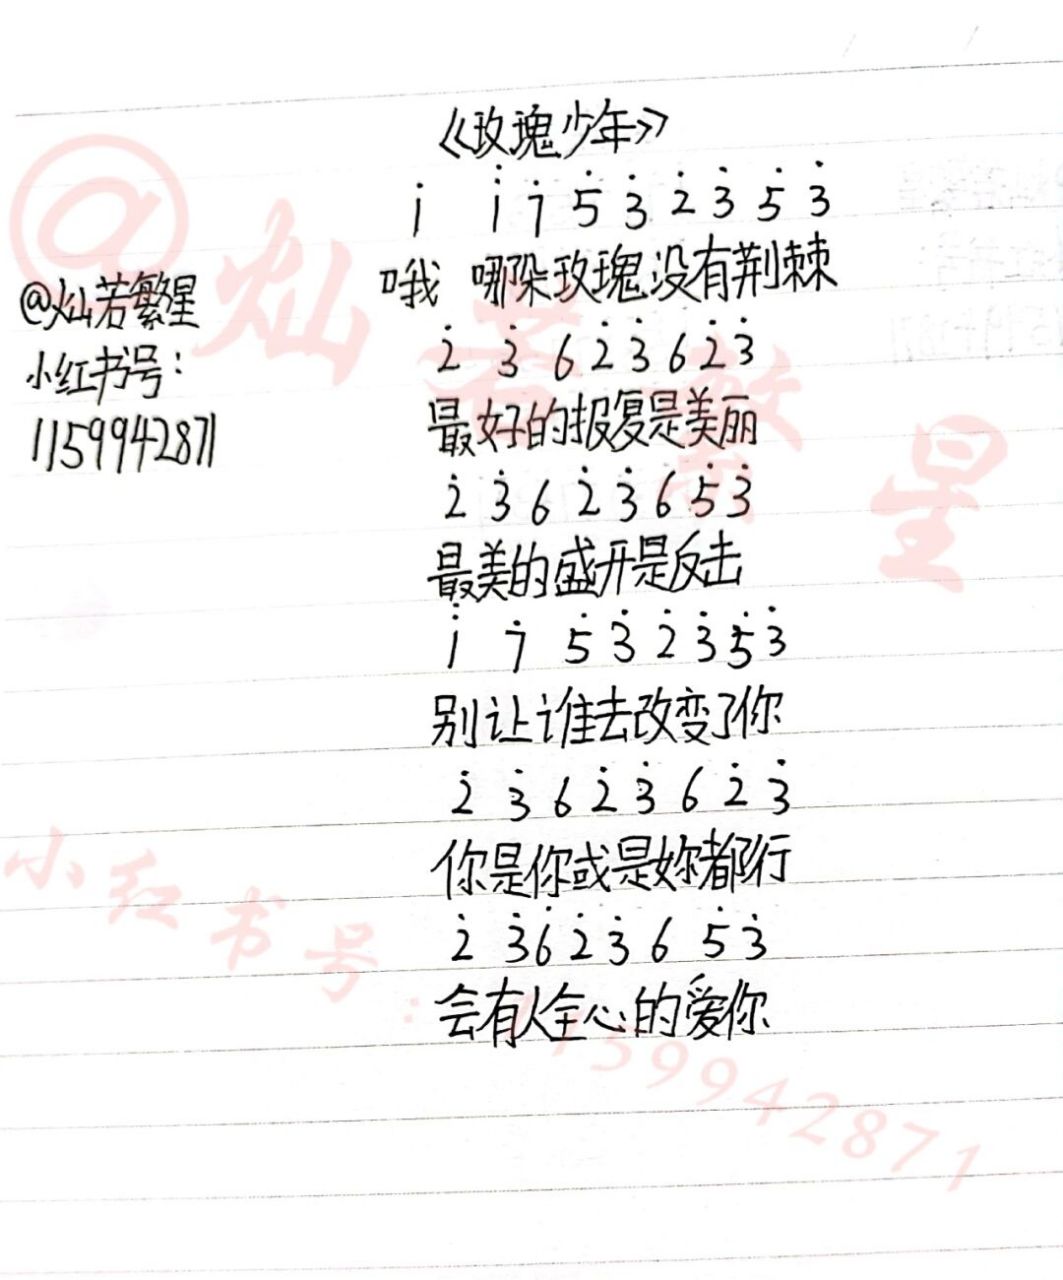 《玫瑰少年》
i̇ i̇̇ 7̇ 5̇ 3̇ 2̇ 3̇ 5̇ 3̇
哦 哪朵玫瑰没有荆棘
@灿若繁星
小红书号:
1159942871
2̇ 3̇ 6 2̇ 3̇ 6 2̇ 3̇
最好的报复是美丽
2̇ 3̇ 6 2̇ 3̇ 6 5̇ 3̇
最美的盛开是反击
i̇̇ 7̇ 5̇ 3̇ 2̇ 3̇ 5̇ 3̇
别让谁去改变了你
2̇ 3̇ 6 2̇ 3̇ 6 2̇ 3̇
你是你或是妳都行
2̇ 3̇ 6̇ 2̇ 3̇ 6 5̇ 3̇
会有人全心的爱你
@灿若繁星
小红书号:1159942871